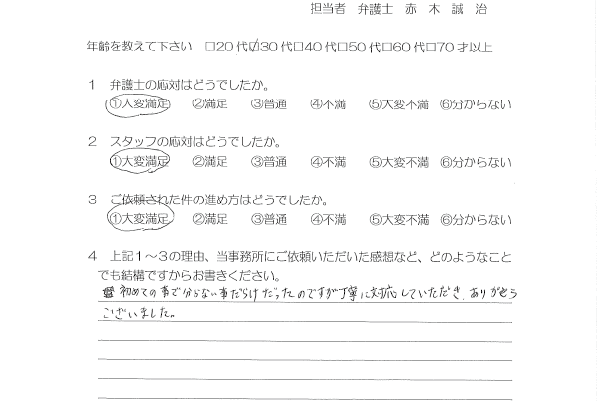 担当者　弁護士　赤　木　誠　治
年齢を教えて下さい　□20代☑30代□40代□50代□60代□70才以上
1　弁護士の応対はどうでしたか。
①大変満足　②満足　③普通　④不満　⑤大変不満　⑥分からない
2　スタッフの応対はどうでしたか。
①大変満足　②満足　③普通　④不満　⑤大変不満　⑥分からない
3　ご依頼された件の進め方はどうでしたか。
①大変満足　②満足　③普通　④不満　⑤大変不満　⑥分からない
4　上記1～3の理由、当事務所にご依頼いただいた感想など、どのようなこと
でも結構ですからお書きください。
初めての事で分らない事だらけだったのですが丁寧に対応していただき、ありがとう
ございました。